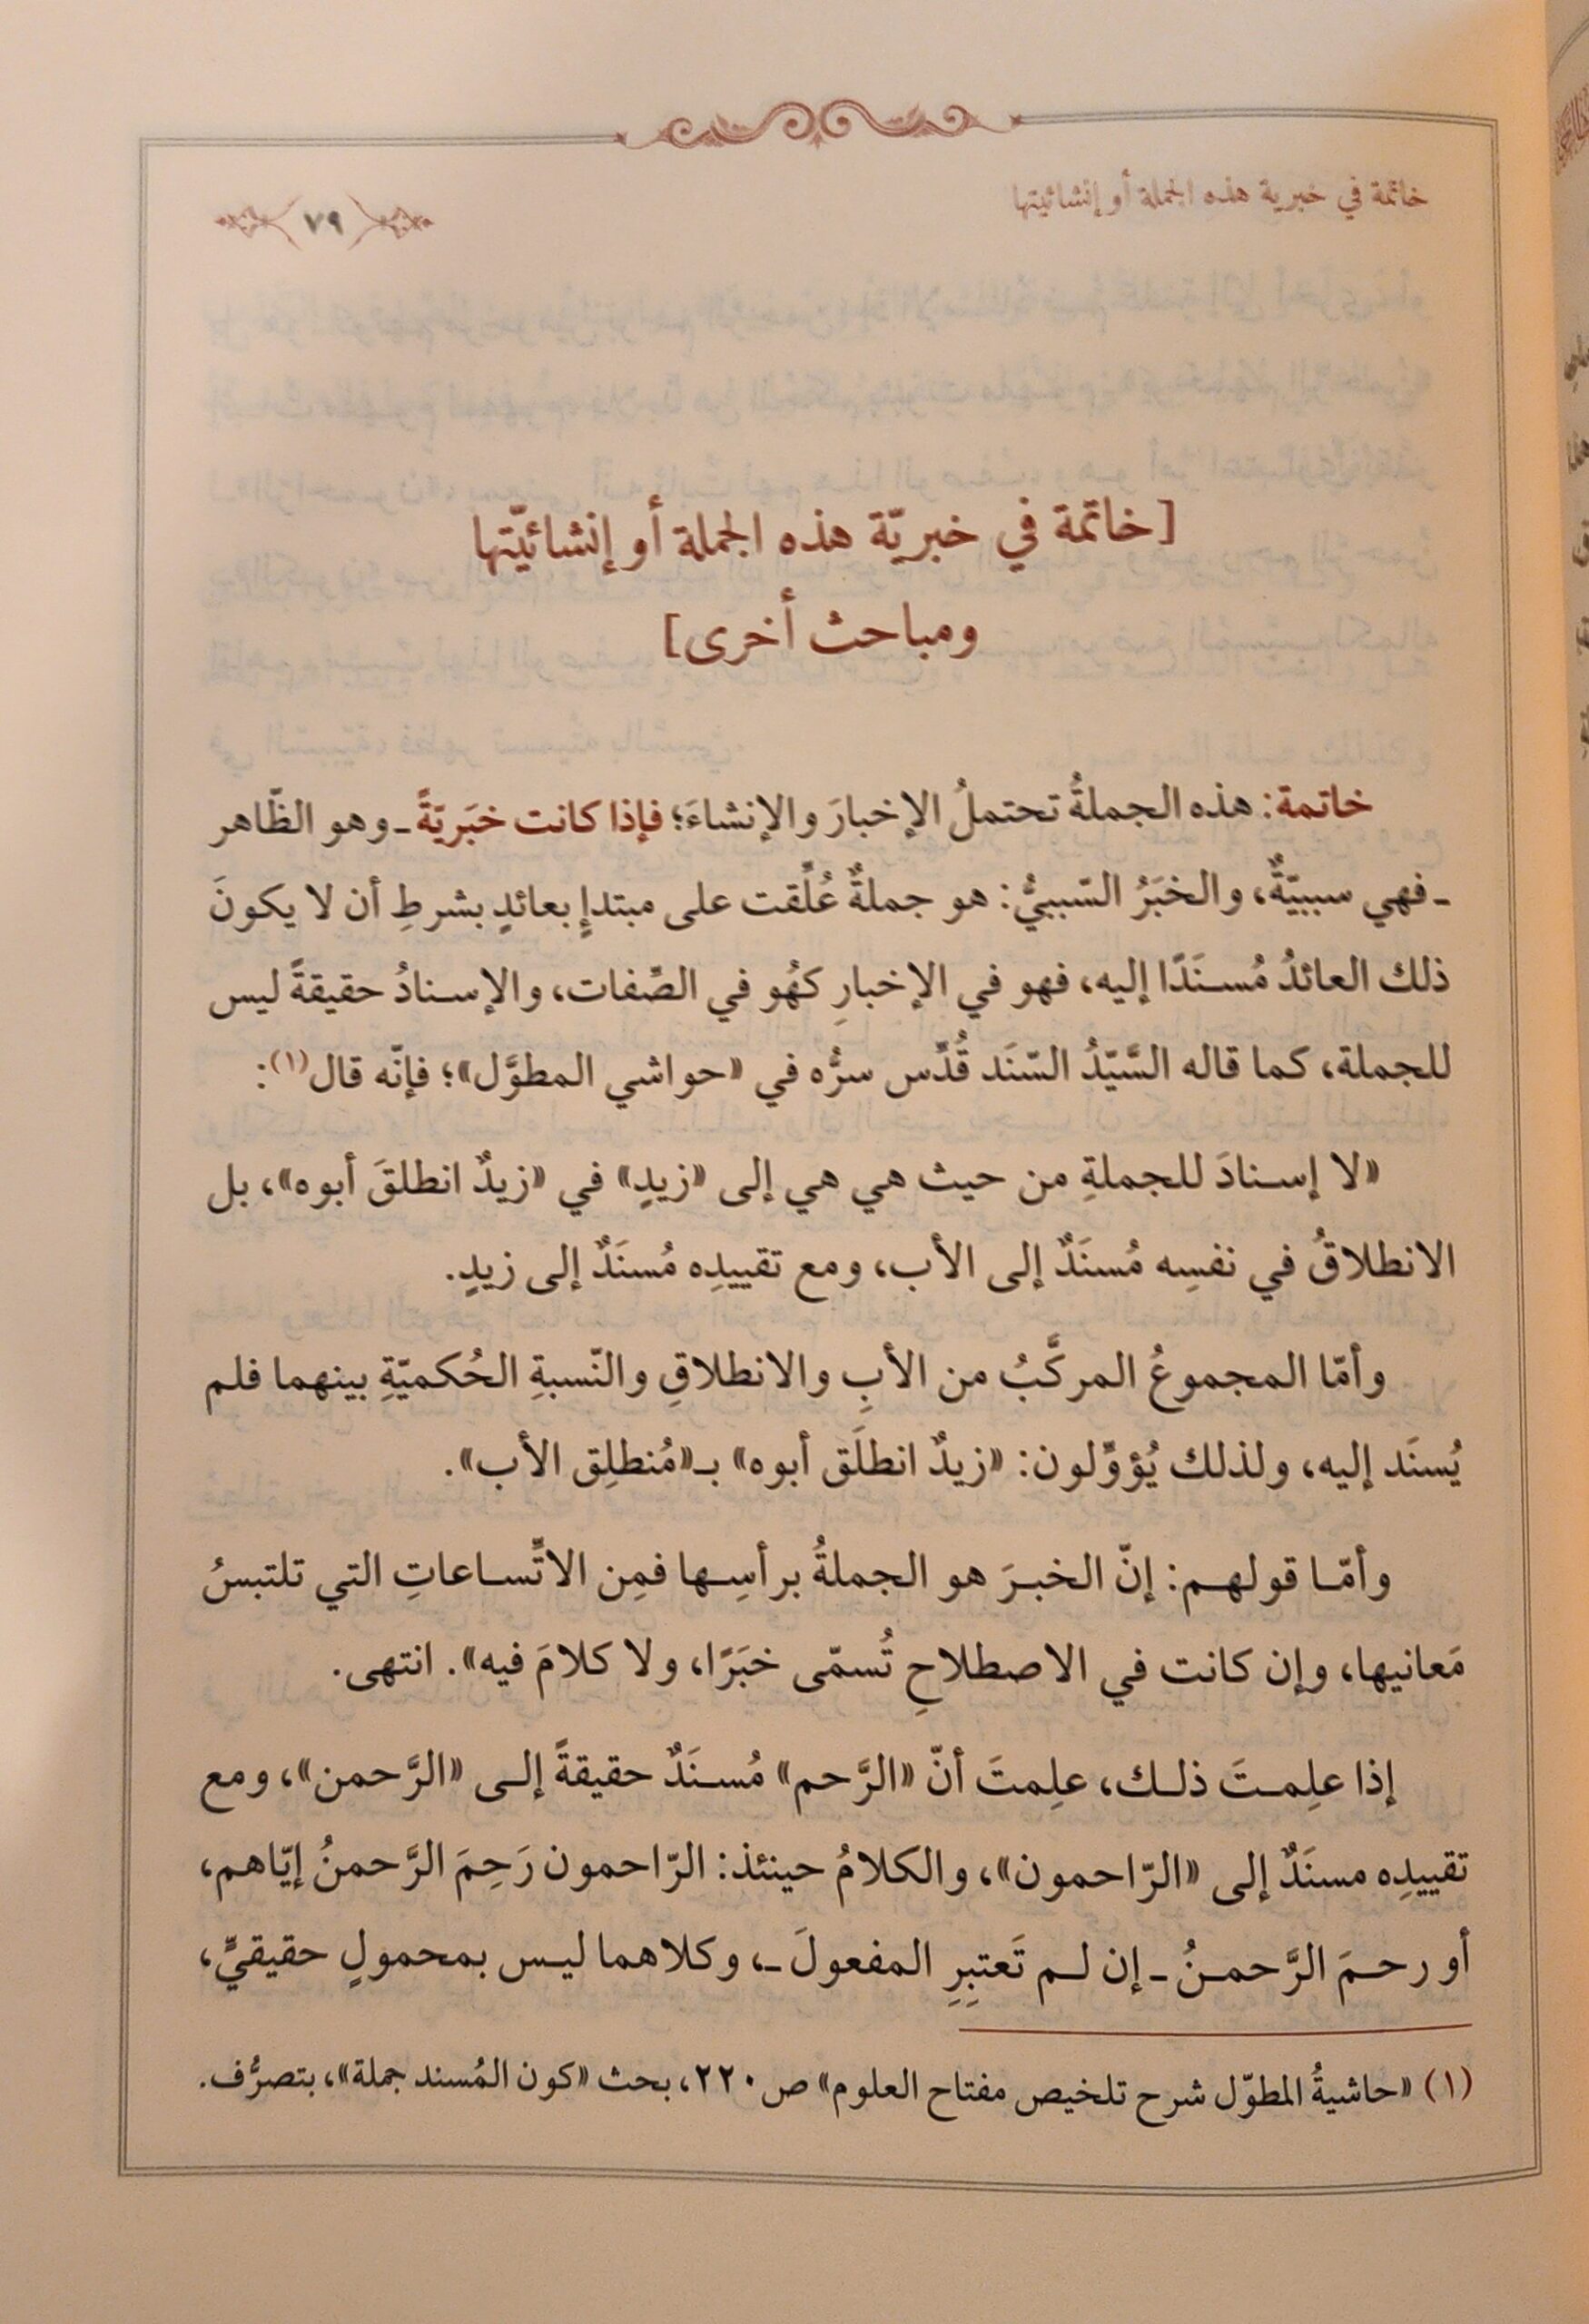 خاتمة في خبرية هذه الجملة أو إنشائيتها
٧٩
[خاتمة في خبريّة هذه الجملة أو إنشائيّتها
ومباحث أخرى]
خاتمة: هذه الجملةُ تحتملُ الإخبارَ والإنشاءَ؛ فإذا كانت خبَريّةً ـ وهو الظّاهر
ـ فهي سببيّةٌ، والخبَرُ السّببيُّ: هو جملةٌ عُلِّقت على مبتدإٍ بعائدٍ بشرطِ أن لا يكونَ
ذلك العائدُ مُسنَدًا إليه، فهو في الإخبارِ كهُو في الصِّفات، والإسنادُ حقيقةً ليس
للجملة، كما قاله السَّيّدُ السّنَد قُدِّس سرُّه في «حواشي المطوَّل»؛ فإنّه قال(١):
«لا إسنادَ للجملةِ من حيث هي هي إلى «زيدٍ» في «زيدٌ انطلقَ أبوه»، بل
الانطلاقُ في نفسِه مُسنَدٌ إلى الأب، ومع تقييدِه مُسنَدٌ إلى زيدٍ.
وأمّا المجموعُ المركَّبُ من الأبِ والانطلاقِ والنّسبةِ الحُكميّةِ بينهما فلم
يُسنَد إليه، ولذلك يُؤوِّلون: «زيدٌ انطلَق أبوه» بـ«مُنطلِق الأب».
وأمّا قولهم: إنّ الخبرَ هو الجملةُ برأسِها فمِن الاتِّساعاتِ التي تلتبسُ
مَعانيها، وإن كانت في الاصطلاحِ تُسمّى خبَرًا، ولا كلامَ فيه». انتهى.
إذا علِمتَ ذلك، علِمتَ أنّ «الرَّحم» مُسنَدٌ حقيقةً إلى «الرَّحمن»، ومع
تقييدِه مسنَدٌ إلى «الرّاحمون»، والكلامُ حينئذ: الرّاحمون رَحِمَ الرَّحمنُ إيّاهم،
أو رحمَ الرَّحمنُ ـ إن لم تَعتبِرِ المفعولَ ـ، وكلاهما ليس بمحمولٍ حقيقيٍّ،
(١) «حاشيةُ المطوّل شرح تلخيص مفتاح العلوم» ص ٢٢٠، بحث «كون المُسند جملة»، بتصرُّف.